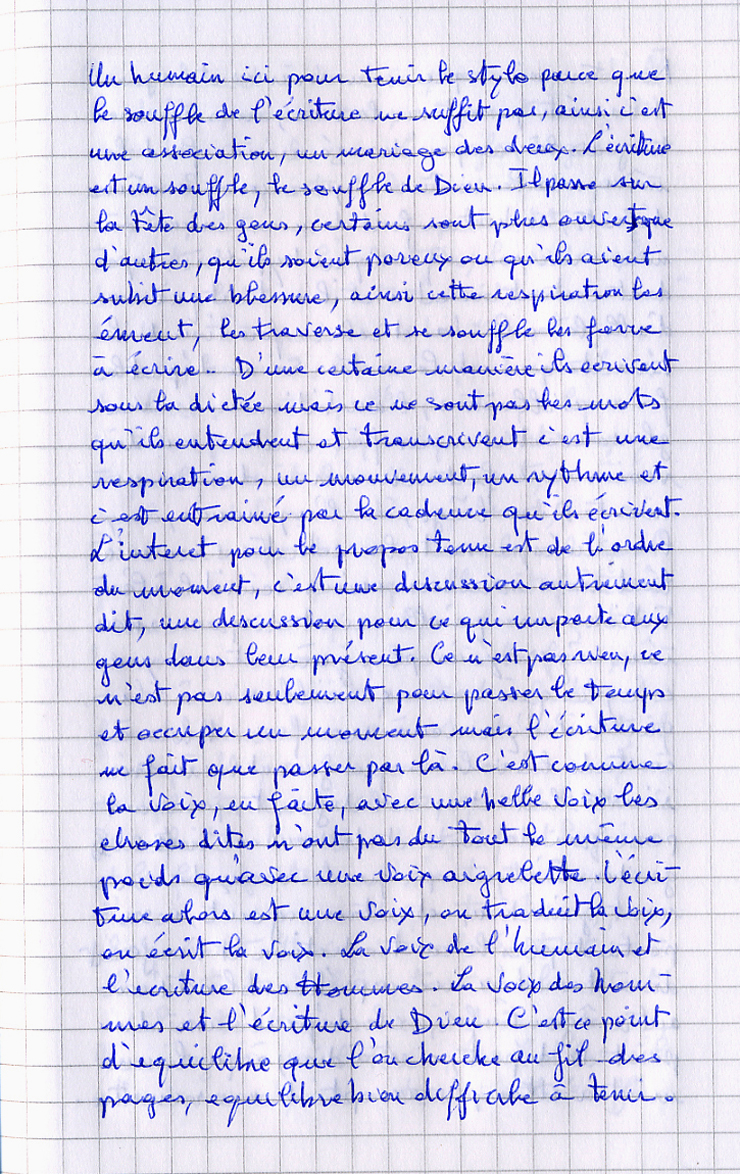 Un humain ici pour tenir le stylo parce que
le souffle de l'écriture ne suffit pas, ainsi c'est
une association, un mariage des deux. L'écriture
est un souffle, le souffle de Dieu. Il passe sur
la tête des gens, certains sont plus ouverts que
d'autres, qu'ils soient poreux ou qu'ils aient
subit une blessure, ainsi cette respiration les
émeut, les traverse et se souffle les force
à écrire.. D'une certaine manière ils écrivent
sous la dictée mais ce ne sont pas les mots
qu'ils entendent et transcrivent c'est une
respiration, un mouvement, un rythme et
c'est entrainé par la cadence qu'ils écrivent.
L'interet pour le propos tenu est de l'ordre
du moment, c'est une discussion autrement
dit, une discussion pour ce qui importe aux
gens dans leur présent. Ce n'est pas rien, ce
n'est pas seulement pour passer le temps
et occuper un moment mais l'écriture
ne fait que passer par là. C'est comme
la voix, en faite, avec une belle voix les
choses dites n'ont pas du tout le même
poids qu'avec une voix aigrelette. L'écri-
ture alors est une voix, on traduit la voix,
on écrit la voix. La voix de l'humain et
l'écriture des Hommes. La voix des hom-
mes et l'écriture de Dieu. C'est ce point
d'equilibre que l'on cherche au fil des
pages, equilibre bien difficile à tenir.